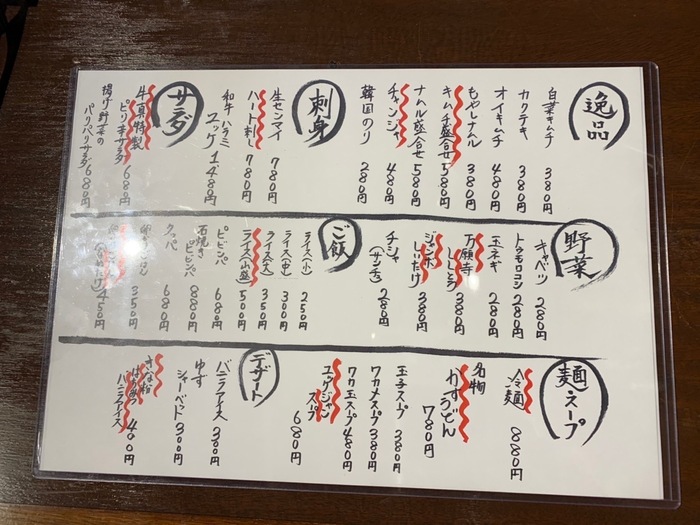 逸品
白菜キムチ 380円
カクテキ 380円
オイキムチ 480円
もやしナムル 380円
キムチ盛合せ 580円
ナムル盛合せ 580円
チャンジャ 480円
韓国のり 280円
刺身
生センマイ 780円
ハート刺し 780円
和牛ハラミ
ユッケ 1480円
サラダ
牛真特製
ピリ辛サラダ 680円
揚げ野菜の
パリパリサラダ 680円
野菜
キャベツ 280円
トウモロコシ 280円
玉ネギ 280円
万願寺
ししとう 380円
ジャンボ
しいたけ 380円
チシャ
(サンチュ) 280円
ご飯
ライス(小) 250円
ライス(中) 300円
ライス(大) 350円
ライス(山盛) 500円
ビビンバ 680円
石焼き
ビビンバ 880円
クッパ 680円
350円
450円
麺・スープ
冷麺 880円
名物
かすうどん 780円
玉子スープ 380円
ワカメスープ 380円
ワカ玉スープ 480円
ユッケジャン
スープ 680円
デザート
バニラアイス 300円
ゆず
シャーベット 300円
きな粉
はちみつ
バニラアイス 400円